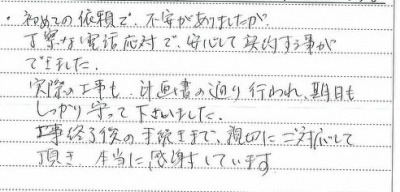 ・初めての依頼で、不安がありましたが
丁寧な電話応対で、安心して契約する事が
できました。
実際の工事も、計画書の通り行われ、期日も
しっかり守って下さいました。
工事終了後の手続きまで、親切にご対応して
頂き 本当に感謝しています